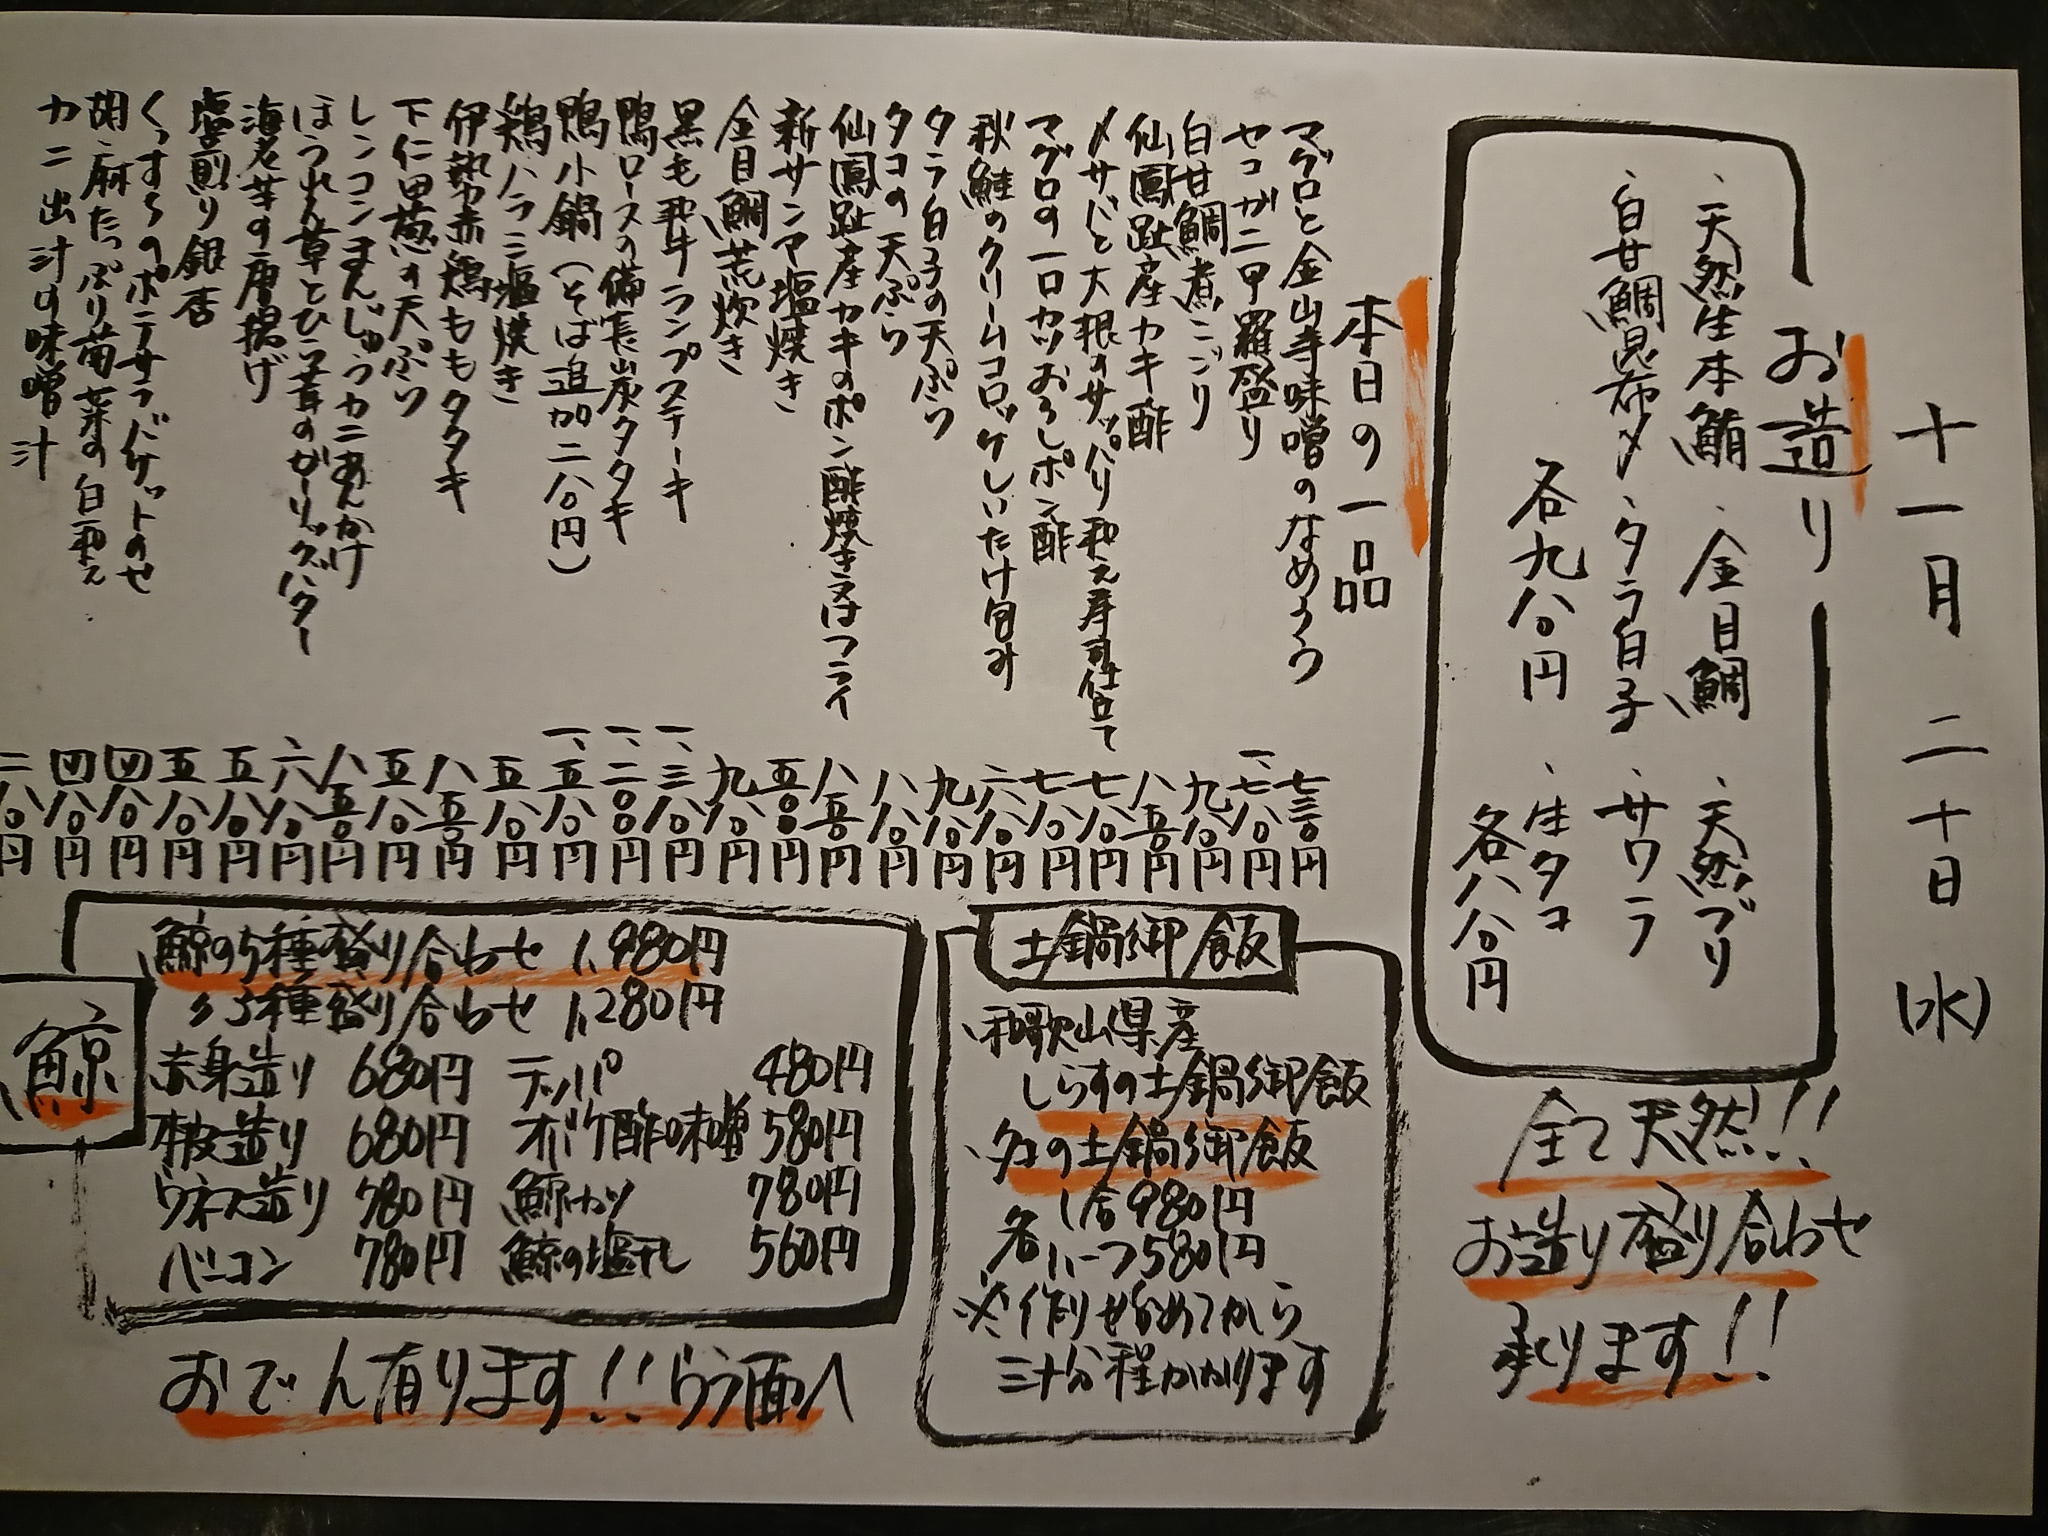 十一月二十日(水)
お造り
、天然生本鮪 、金目鯛 、天然ブリ
、白甘鯛昆布〆 、タラ白子 、サワラ
、生タコ
各九八〇円
各八八〇円
全て天然!!
お造り盛り合わせ
承ります!!
本日の一品
マグロと金山寺味噌のなめろう 七三〇円
セコガニ甲羅盛り 一、七八〇円
白甘鯛煮こごり 九八〇円
仙鳳趾産カキ酢 八五〇円
〆サバと大根のサッパリ和え寿司仕立て 七八〇円
マグロの一口カツおろしポン酢 七八〇円
秋鮭のクリームコロッケしいたけ旬み 六八〇円
タラ白子の天ぷら 九八〇円
タコの天ぷら 八八〇円
仙鳳趾産カキのポン酢焼き又はフライ 八五〇円
新サンマ塩焼き 五〇〇円
金目鯛荒炊き 九八〇円
黒毛和牛ランプステーキ 一、三八〇円
鴨ロースの備長炭タタキ 一、二〇〇円
鴨小鍋(そば追加二八〇円) 一、五八〇円
鶏ハラミ塩焼き 五八〇円
伊勢赤鶏ももタタキ 八五〇円
下仁田葱の天ぷら 五八〇円
レンコンまんじゅうカニあんかけ 八五〇円
ほうれん草とひら茸のガーリックバター 六八〇円
海老芋の唐揚げ 五八〇円
塩煎り銀杏 五八〇円
くっすらのポテサラバケットのせ 四八〇円
胡麻たっぷり菊菜の白和え 四八〇円
カニ出汁の味噌汁 二八〇円
土鍋御飯
、和歌山県産
しらすの土鍋御飯
、タコの土鍋御飯
各 1合980円
ハーフ580円
※作り始めてから
三十分程かかります
鯨
鯨の5種盛り合わせ 1,980円
〃3種盛り合わせ 1,280円
赤身造り 680円 テッパ 480円
本皮造り 680円 オバケ酢味噌 580円
ウネス造り 780円 鯨カツ 780円
ベーコン 780円 鯨の塩干し 560円
おでん有ります!!ウラ面へ